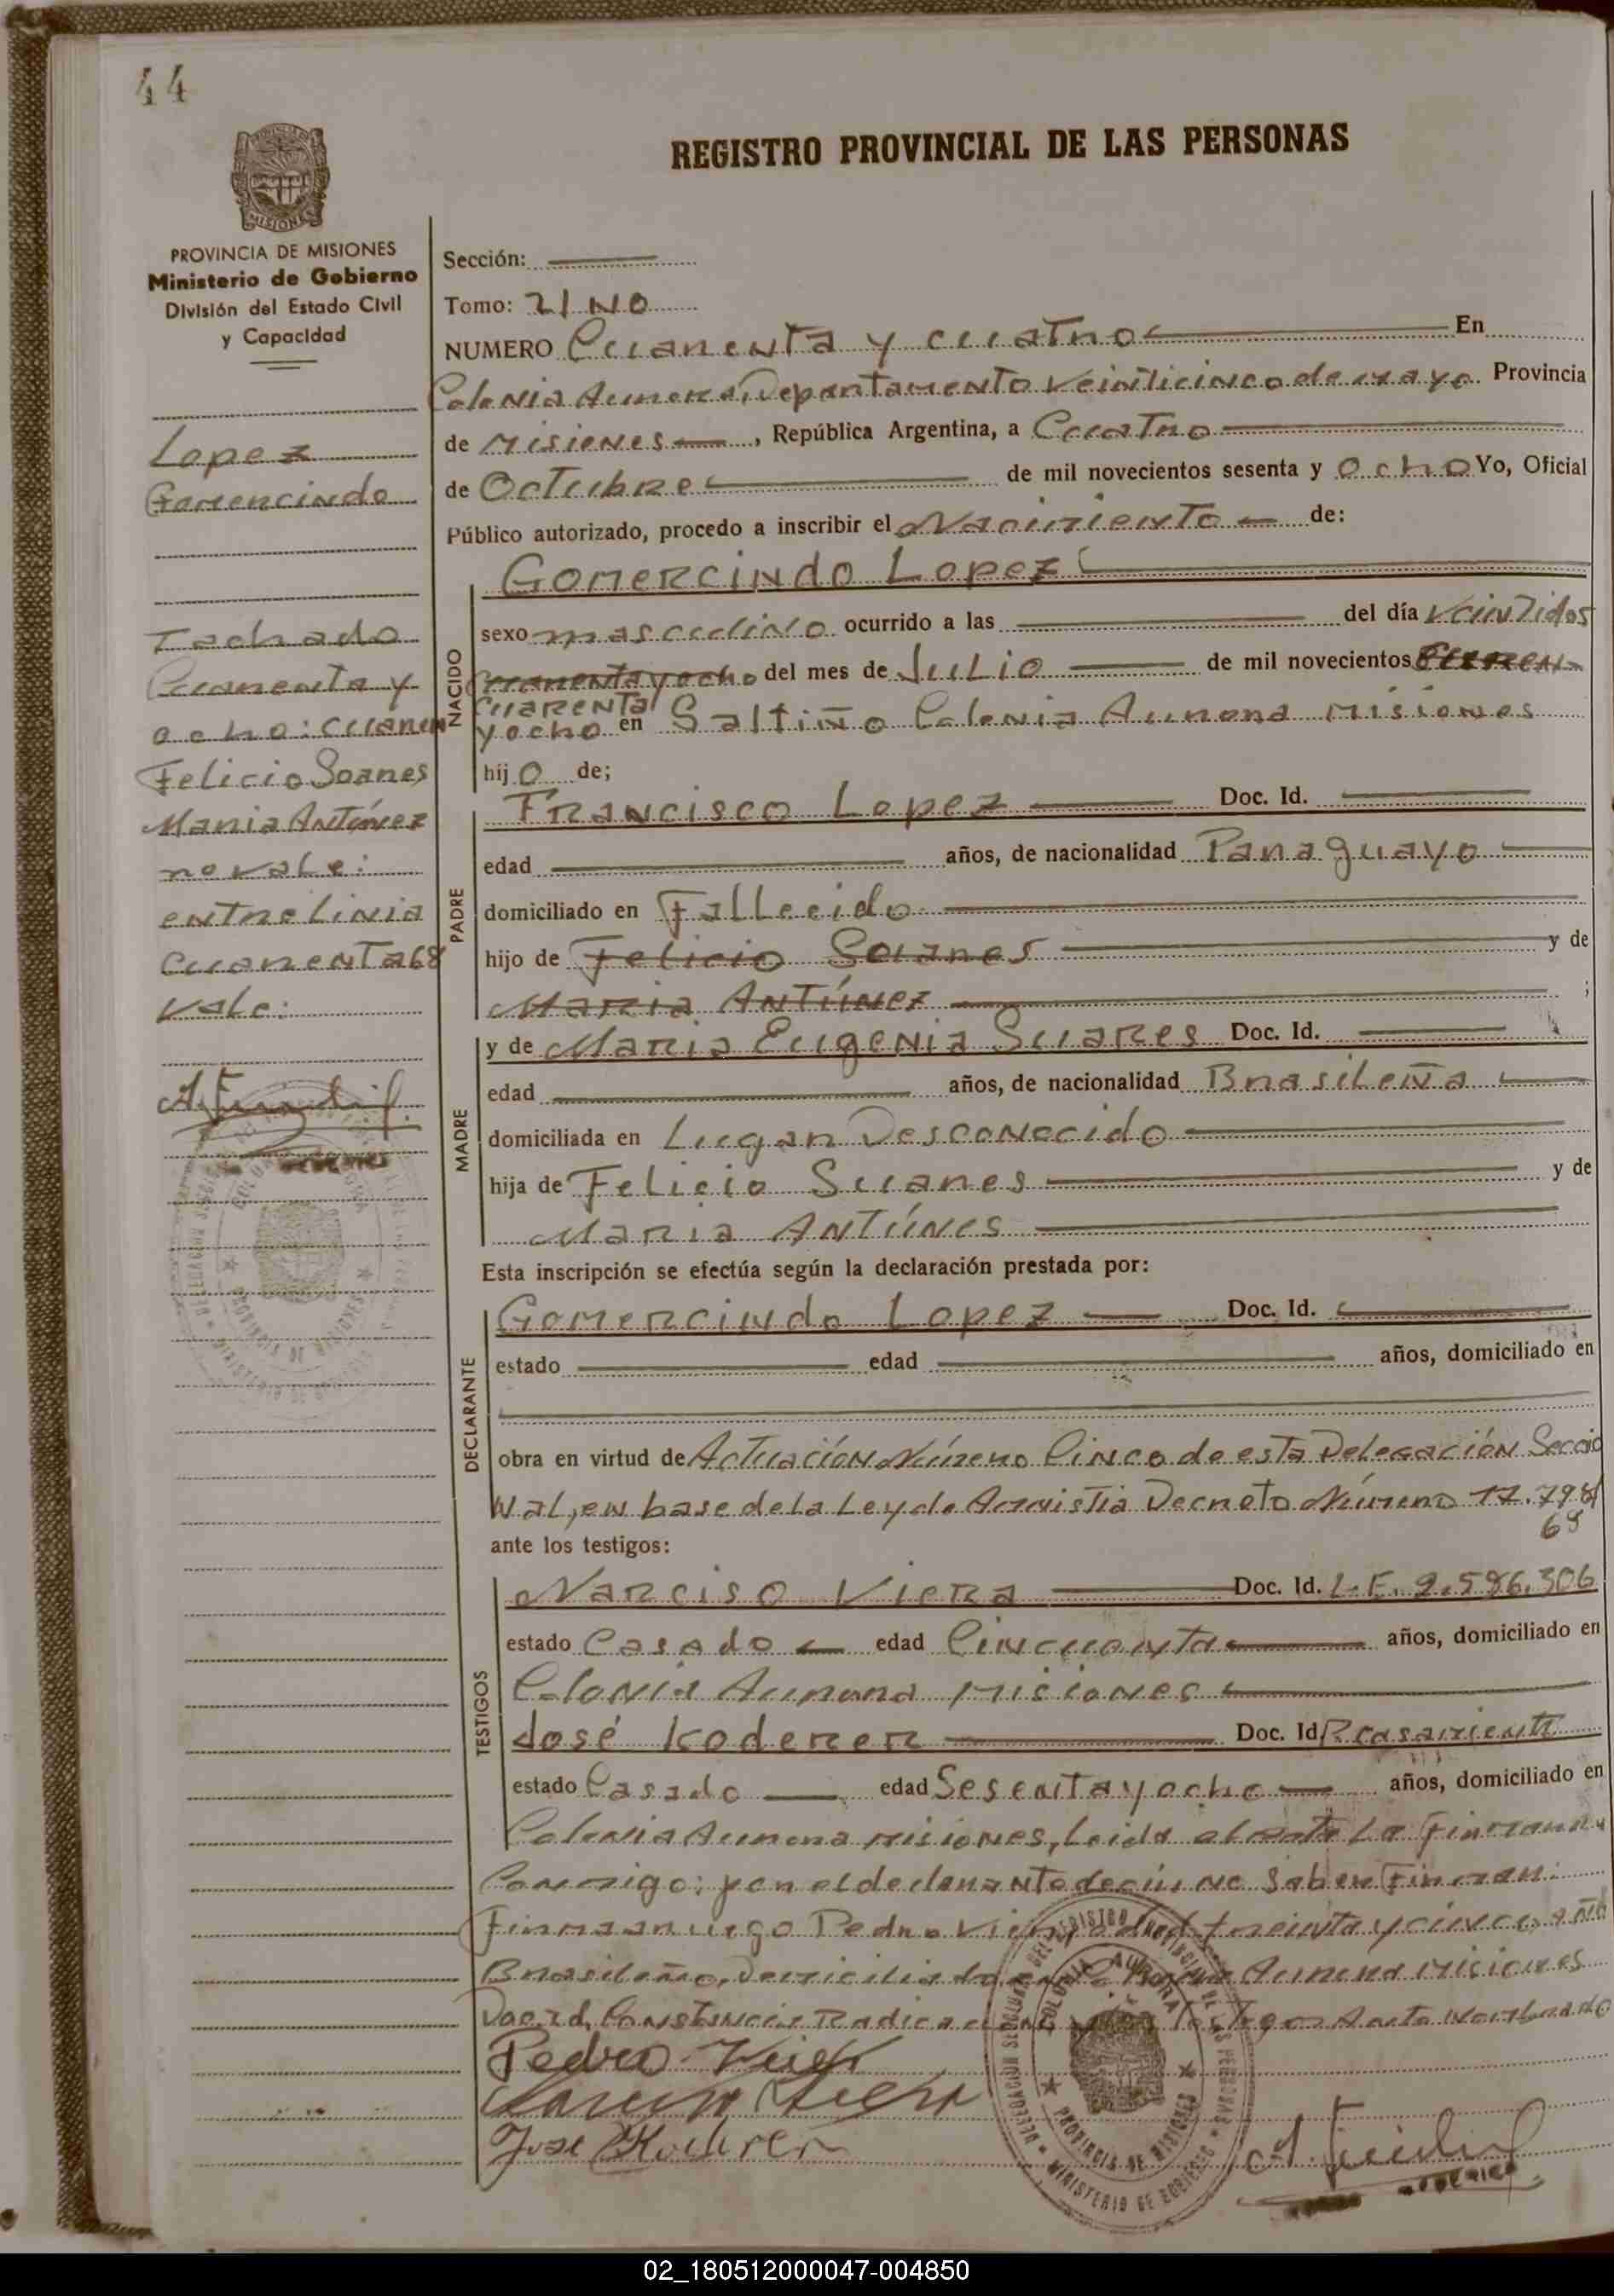 44
REGISTRO PROVINCIAL DE LAS PERSONAS
MISIONES
PROVINCIA DE MISIONES
Ministerio de Gobierno
División del Estado Civil
y Capacidad
Lopez
Gomercindo
Tachado
Cuarenta y
ocho: cuaren
Felicio Soares
Maria Antúnez
no vale:
entre linia
cuarenta 68
vale:
Sección:
Tomo: 21 NO
NUMERO Cuarenta y cuatro En
Colonia Aurora, Departamento Veinticinco de mayo Provincia
de Misiones, República Argentina, a Cuatro
de Octubre de mil novecientos sesenta y ocho Yo, Oficial
Público autorizado, procedo a inscribir el Nacimiento de:
Gomercindo Lopez
NACIDO
sexo masculino ocurrido a las del día veintidos
cuarenta y ocho del mes de Julio de mil novecientos
cuarenta
y ocho en Saltiño Colonia Aurora Misiones
hijo de;
PADRE
Francisco Lopez Doc. Id.
edad años, de nacionalidad Paraguayo
domiciliado en Fallecido
hijo de Felicio Soares y de
Maria Antúnez ;
MADRE
y de Maria Eugenia Suares Doc. Id.
edad años, de nacionalidad Brasileña
domiciliada en Lugar Desconocido
hija de Felicio Suares y de
Maria Antúnes
Esta inscripción se efectúa según la declaración prestada por:
DECLARANTE
Gomercindo Lopez Doc. Id.
estado edad años, domiciliado en
obra en virtud de Actuación Número Cinco de esta Delegación Seccio
nal, en base de la Ley de Amnistia Decreto Número 17.798/
68
ante los testigos:
TESTIGOS
Narciso Viera Doc. Id. L.E. 9.586.306
estado Casado edad Cincuenta años, domiciliado en
Colonia Aurora Misiones
José Koderer Doc. Id
estado Casado edad Sesenta y ocho años, domiciliado en
Colonia Aurora Misiones, Leida el acta La Firman
Conmigo: por el declarante decir no saber Firmar:
Firma a ruego Pedro treinta y cinco
Brasileño, Domiciliado Aurora Misiones
Doc. Id. Constancia
Pedro
Jose
COLONIA AURORA
PROVINCIA DE MISIONES
MINISTERIO DE GOBIERNO
02_180512000047-004850